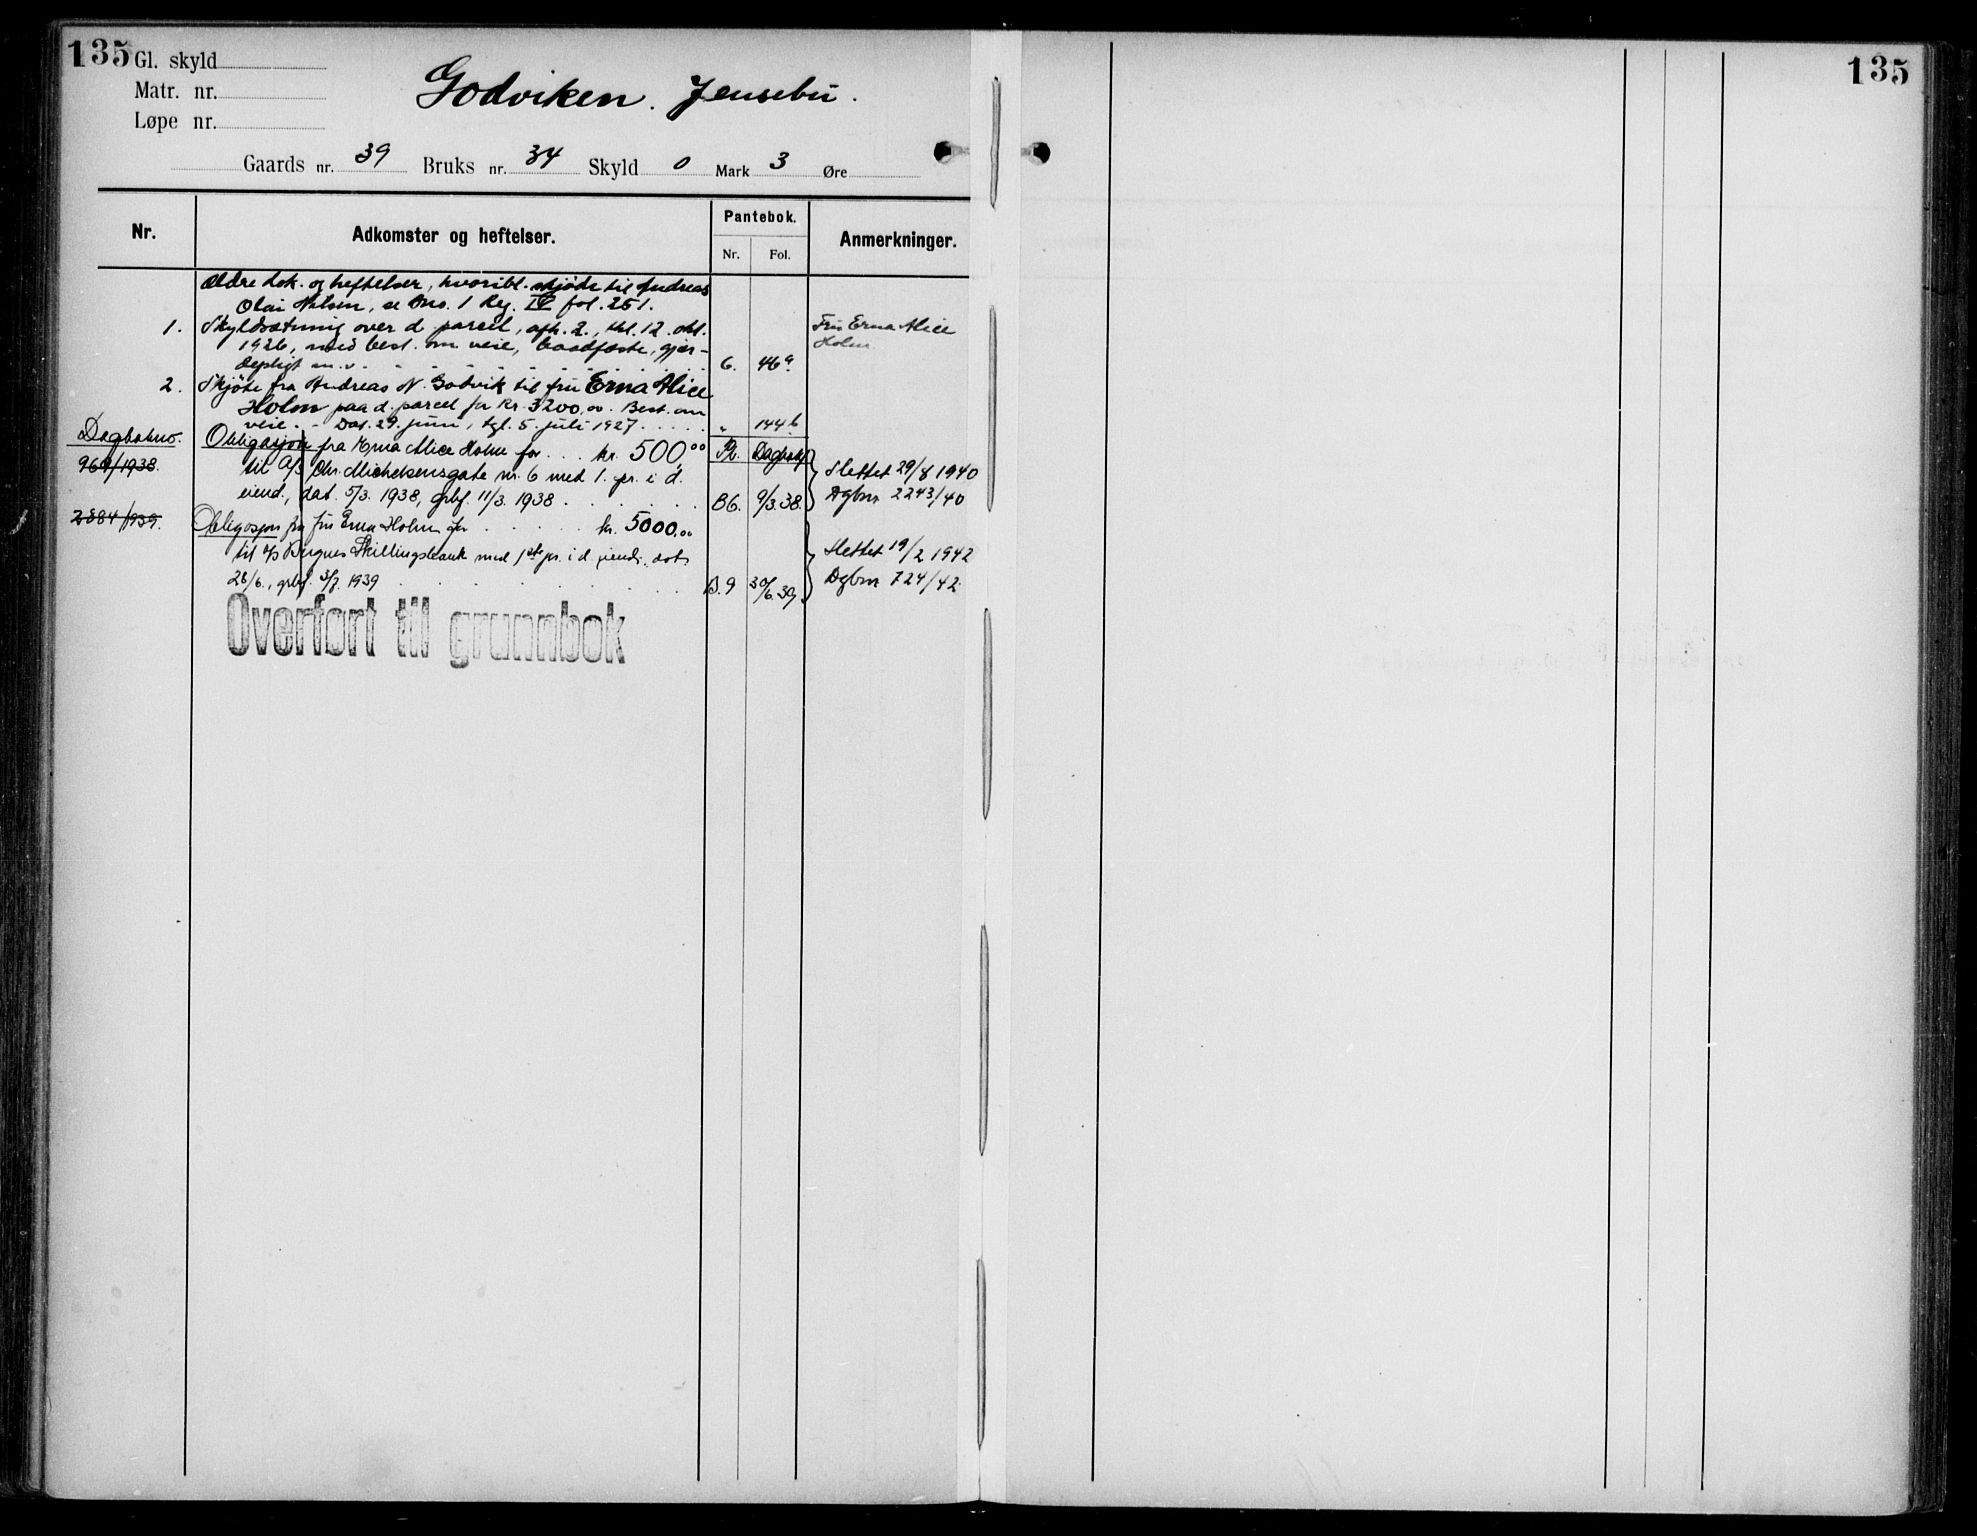 135
Gl. skyld
Matr. nr.
Løpe nr.
Godviken. Jensebu.
Gaards nr. 39 Bruks nr. 34 Skyld 0 Mark 3 Øre
Nr.
Adkomster og heftelser.
Pantebok.
Nr. Fol.
Anmerkninger.
Ældre dok. og heftelser, hvoribl. skjøde til Andreas
Olai Nilsen, se Bno. 1 Reg. IV fol. 251.
1. Skyldsætning over d parcel, afh. 2., thl. 12. okt.
1926, med best. om veie, baadfæste, gjær-
depligt m. v. 6. 46a
Fru Erna Alice
Holm
2. Skjøte fra Andreas N. Godvik til fru Erna Alice
Holm paa d. parcel for Kr. 3200,00. Best. om
veie. - Dat. 29. juni, tgl. 5. juli 1927 " 144b
Dagbokno.
969/1938. Obligasjon fra Erna Alice Holm for kr. 500,00 Pb. Dagbokf
til A/S Chr. Michelsensgate nr. 6 med 1. pr. i d.
eiend., dat. 5/3. 1938, grbf. 11/3. 1938 B6. 9/3.38.
Slettet 29/8 1940
Dgbnr 2243/40
2384/1939. Obligasjon fra fru Erna Holm for kr. 5000,00
til a/s Bergens Skillingsbank med 1ste pr. i d eiend., dat.
28/6., grbf. 3/7. 1939 B.9 30/6.39
Slettet 19/2 1942
Dgbnr 724/42.
Overført til grunnbok
135